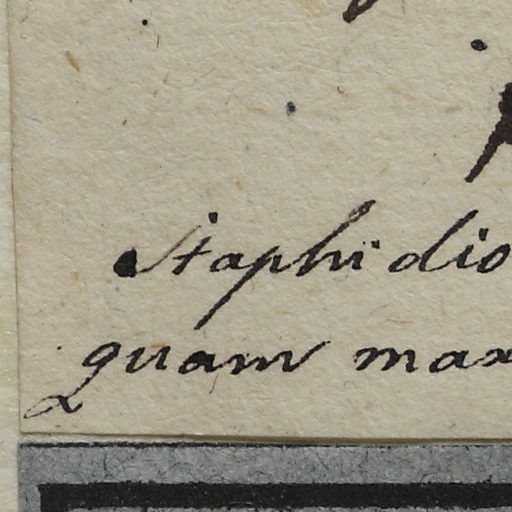 Staphidio
quam max